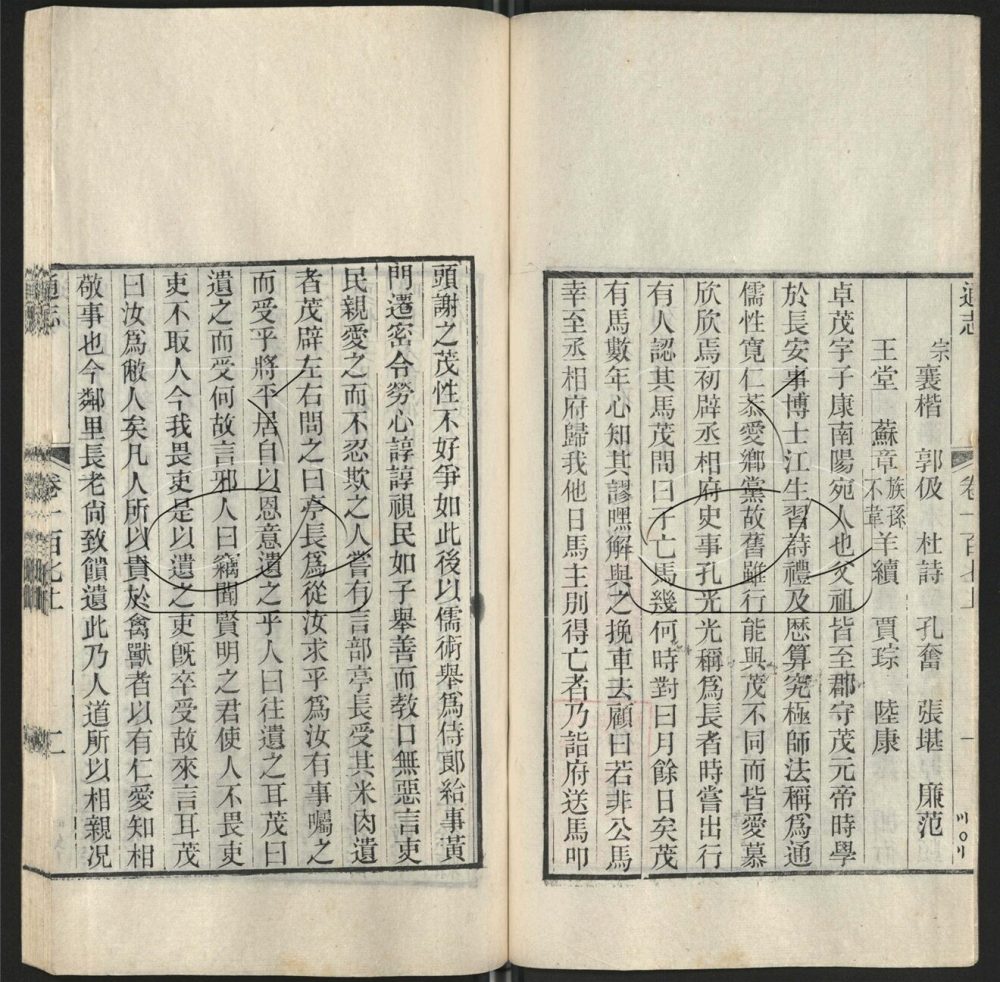 通志
卷一百七上
一
宗 襄楷 郭伋 杜詩 孔奮 張堪 廉范
王堂 蘇章 族孫不韋 羊續 賈琮 陸康
卓茂字子康南陽宛人也父祖皆至郡守茂元帝時學
於長安事博士江生習詩禮及歷算究極師法稱爲通
儒性寬仁恭愛鄉黨故舊雖行能與茂不同而皆愛慕
欣欣焉初辟丞相府史事孔光光稱爲長者時嘗出行
有人認其馬茂問曰子亡馬幾何時對曰月餘日矣茂
有馬數年心知其謬嘿解與之挽車去顧曰若非公馬
幸至丞相府歸我他日馬主別得亡者乃詣府送馬叩
頭謝之茂性不好爭如此後以儒術舉爲侍郎給事黃
門遷密令勞心諄諄視民如子舉善而教口無惡言吏
民親愛之而不忍欺之人嘗有言部亭長受其米肉遺
者茂辟左右問之曰亭長爲從汝求乎爲汝有事囑之
而受乎將平居自以恩意遺之乎人曰往遺之耳茂曰
遺之而受何故言邪人曰竊聞賢明之君使人不畏吏
吏不取人今我畏吏是以遺之吏既卒受故來言耳茂
曰汝爲敝人矣凡人所以貴於禽獸者以有仁愛知相
敬事也今鄰里長老尚致饋遺此乃人道所以相親况
通志
卷一百七上
二